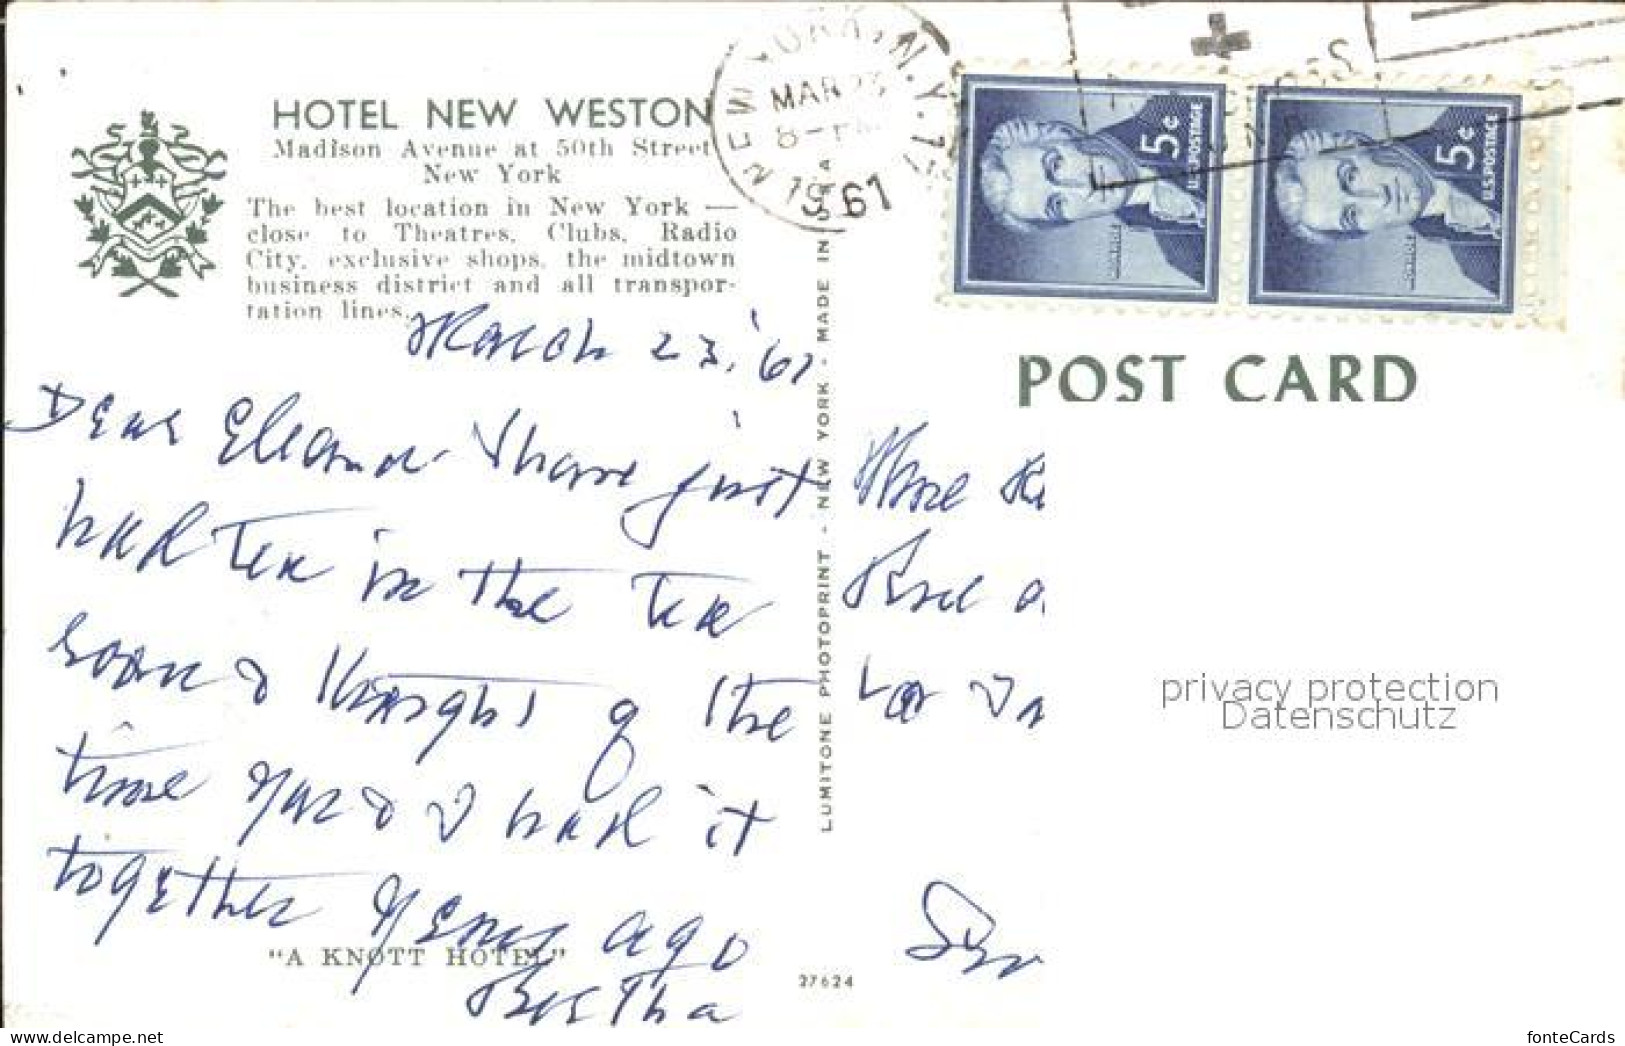 HOTEL NEW WESTON
Madison Avenue at 50th Street
New York
The best location in New York —
close to Theatres, Clubs, Radio
City, exclusive shops, the midtown
business district and all transpor-
tation lines.
NEW YORK, N.Y.
MAR
8-PM
1961
5¢
U.S.POSTAGE
5¢
U.S.POSTAGE
POST CARD
March 23, '61
Dear Eleanor I have just
had tea in the tea
room & thought of the
time you & I had it
together years ago
Bertha
"A KNOTT HOTEL"
LUMITONE PHOTOPRINT - NEW YORK - MADE IN U S A
27624
privacy protection
Datenschutz
fonteCards